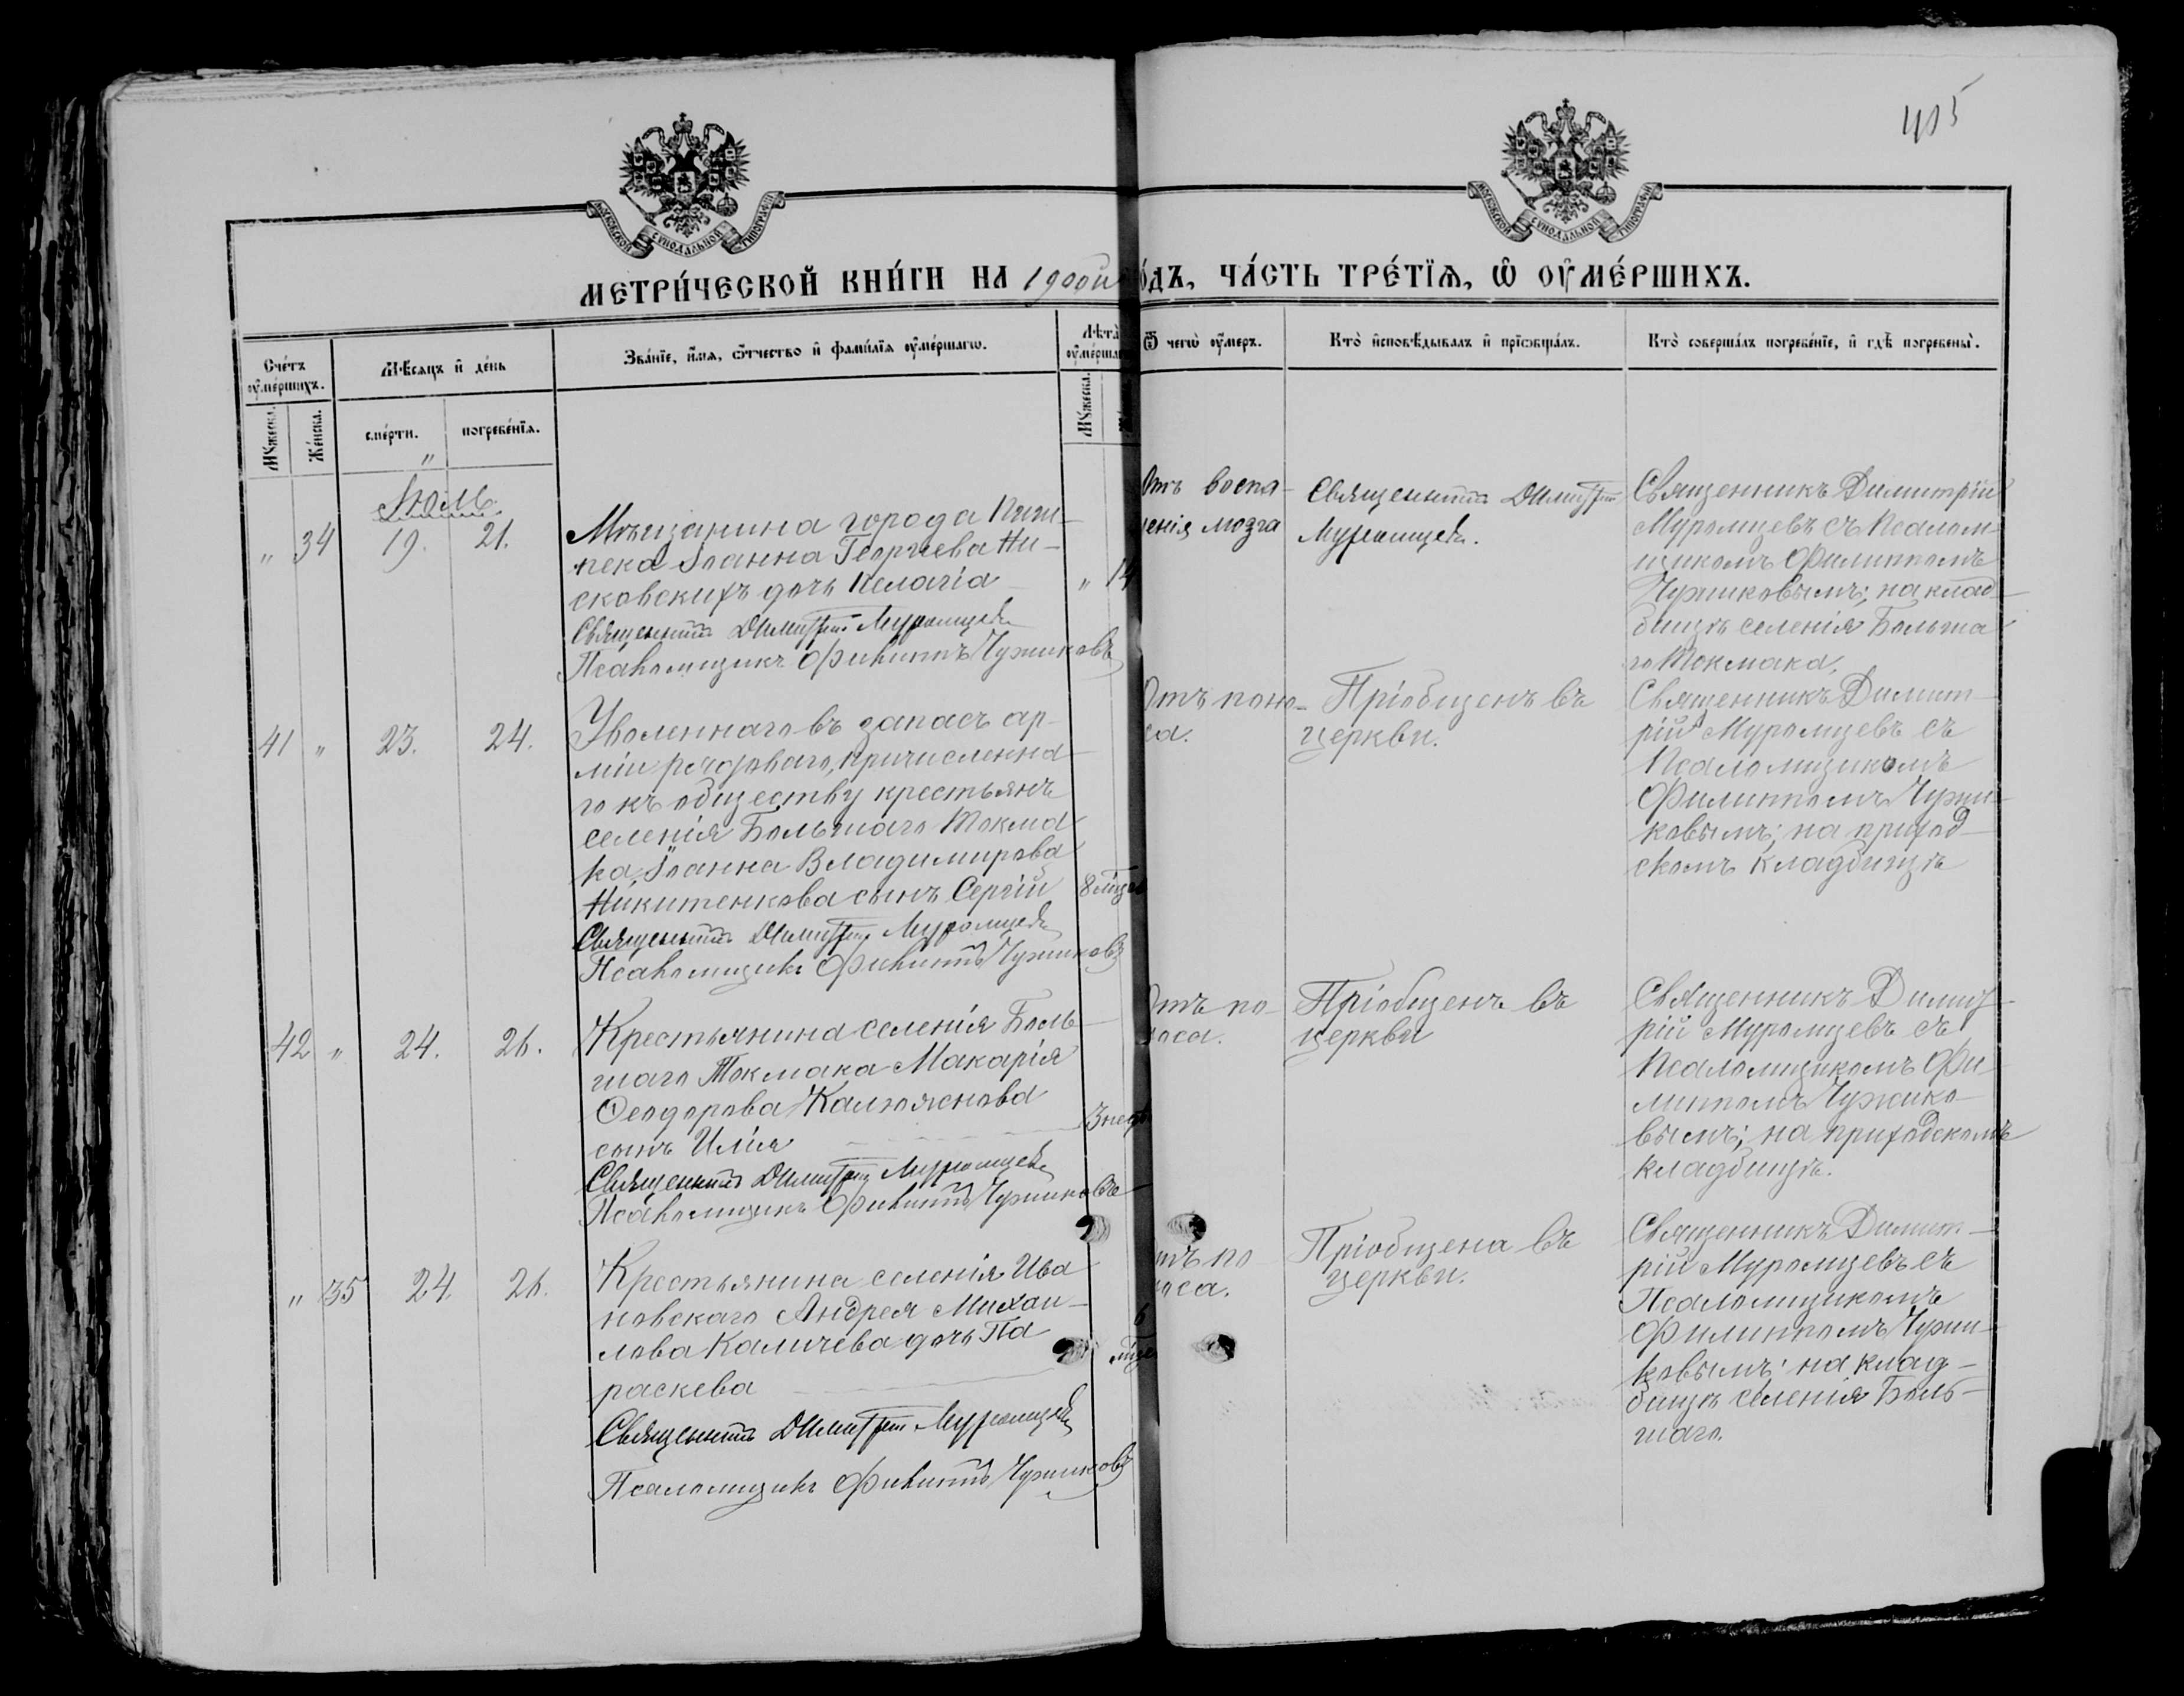 415
МОСКОВСКОЙ СѴНОДАЛЬНОЙ ТИПОГРАФІИ
МОСКОВСКОЙ СѴНОДАЛЬНОЙ ТИПОГРАФІИ
МЕТРИ́ЧЕСКОЙ КНИ́ГИ НА 1900й
о́дъ, ЧА́СТЬ ТРЕ́ТІЯ, Ѡ ОУМЕ́РШИХЪ.
Сче́тъ оуме́ршихъ.
Мѣсяцъ и де́нь
Зва́ніе, и́мя, ѻ́тчество и фами́лія оуме́ршагѡ.
Лѣта̀ оуме́рша
Ѿ чегѡ̀ оу́меръ.
Кто̀ исповѣ́дывалъ и пріѡбща́лъ.
Кто̀ соверша́лъ погребе́ніе, и гдѣ̀ погребены̀.
Мꙋжеска.
Же́нска.
сме́рти.
погребе́нія.
Мꙋжеска.
"
Іюль
" 34 19. 21.
Мѣщанина города
Іоанна Георгіева Ни-
сковскихъ дочь Пелагія
" 14
Священникъ Димитрій Муромцевъ
Псаломщикъ Филиппъ Чужиковъ
Отъ воспа-
ленія мозга
Священникъ Димитрій
Муромцевъ.
Священникъ Димитрій
Муромцевъ съ Псалом-
щикомъ Филиппомъ
Чужиковымъ; на клад-
бищѣ селенія Больша-
го Токмака.
41 " 23. 24.
Уволеннаго въ запасъ ар-
міи рядоваго, причисленна-
го къ обществу крестьянъ
селенія Большаго Токма
ка, Іоанна Владимирова
Никитенкова сынъ Сергій
8 мѣся
Священникъ Димитрій Муромцевъ
Псаломщикъ Филиппъ Чужиковъ
Отъ поно-
са.
Пріобщенъ въ
церкви.
Священникъ Димит-
рій Муромцевъ съ
Псаломщикомъ
Филиппомъ Чужи-
ковымъ; на приход-
скомъ кладбищѣ
42 " 24. 26.
Крестьянина селенія Боль-
шаго Токмака Макарія
Ѳеодорова
сынъ Илія
3 нед
Священникъ Димитрій Муромцевъ
Псаломщикъ Филиппъ Чужиковъ
Отъ по-
носа.
Пріобщенъ въ
церкви
Священникъ Димит-
рій Муромцевъ съ
Псаломщикомъ Фи-
липпомъ Чужико-
вымъ; на приходскомъ
кладбищѣ.
" 35 24. 26.
Крестьянина селенія Ива
новскаго Андрея Михаи-
лова Каличева дочь Па
раскева
6
мѣся
Священникъ Димитрій Муромцевъ
Псаломщикъ Филиппъ Чужиковъ
тъ по-
носа.
Пріобщена въ
церкви.
Священникъ Димит-
рій Муромцевъ съ
Псаломщикомъ
Филиппомъ Чужи-
ковымъ; на клад-
бищѣ селенія Боль-
шаго.